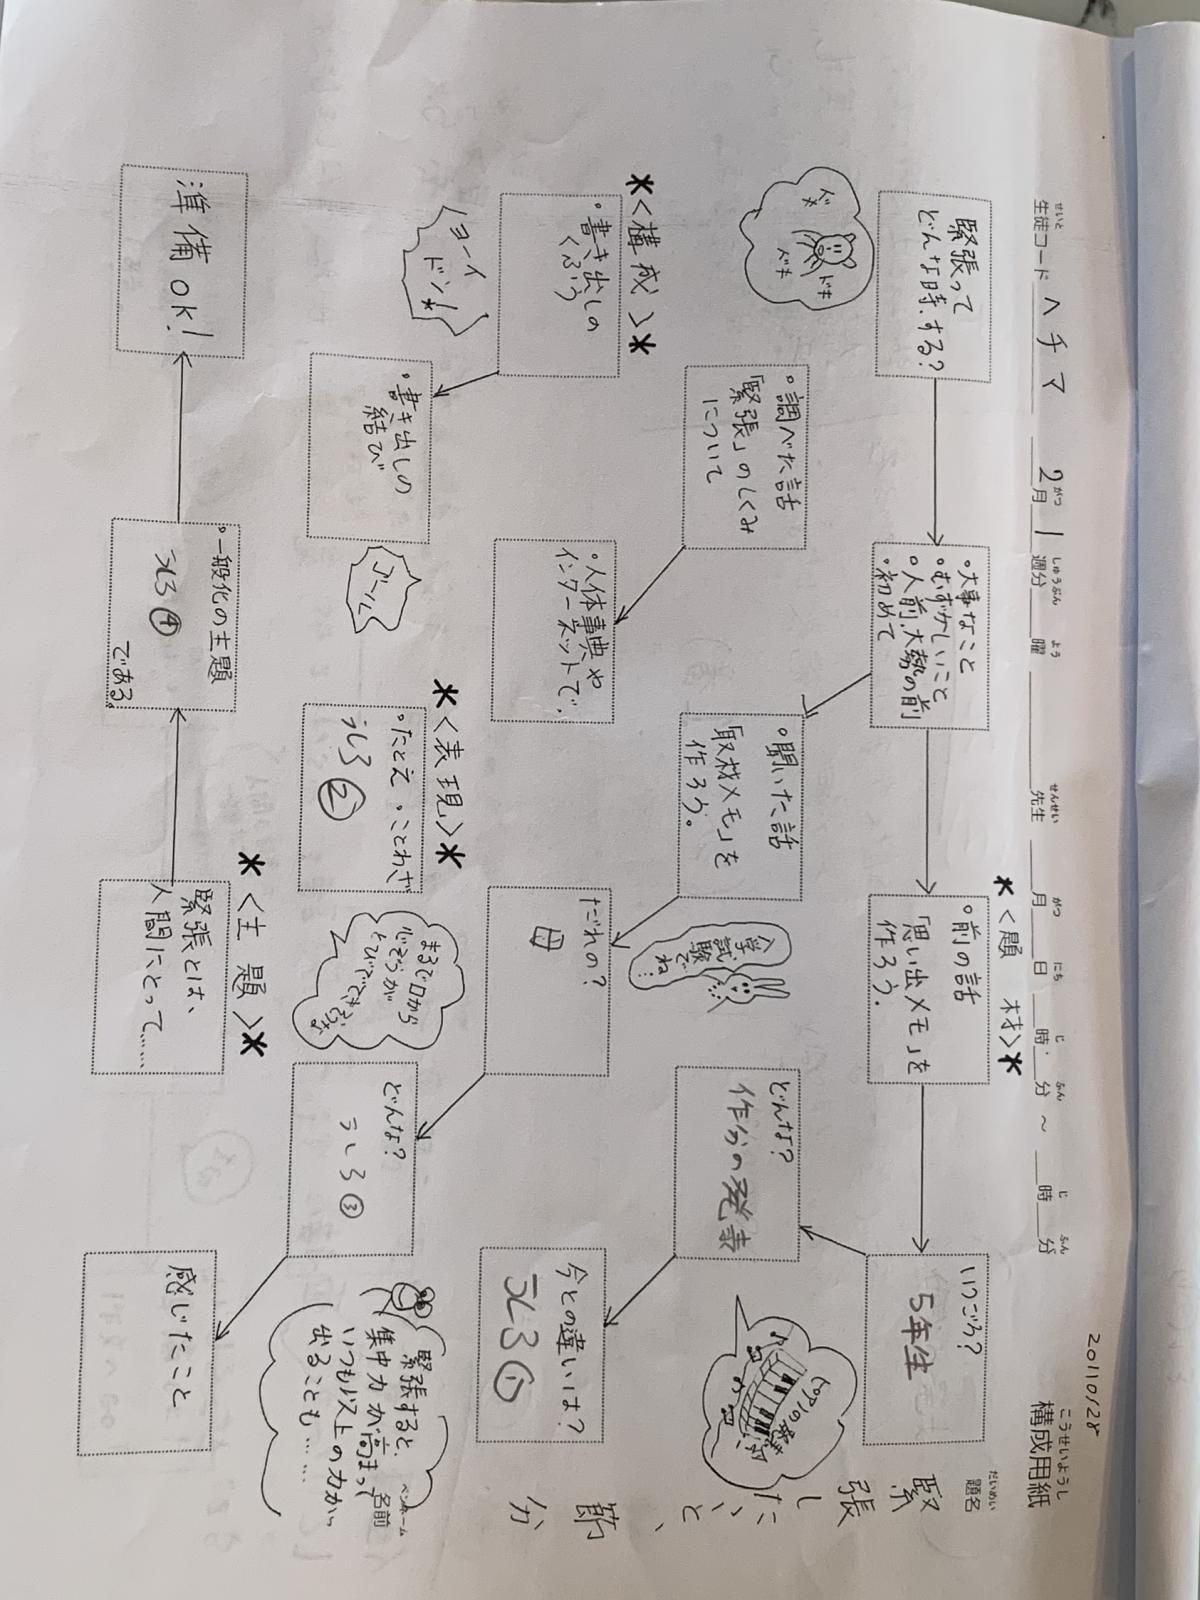 20110128
構成用紙
こうせいようし
生徒コード ヘチマ 2月1週分 曜 先生 月 日 時 分 ~ 時 分
せいと がつ しゅうぶん よう せんせい がつ にち じ ふん じ ふん
だいめい
題名
緊張したこと、節分
ペンネーム
名前
*<題 材>*
緊張って
どんな時、する?
ドキ
ドキ
・大事なこと
・むずかしいこと
・人前、大勢の前
・初めて
・前の話
「思い出メモ」を
作ろう。
いつごろ?
5年生
どんな?
作分の発表
ピアノの発表
今との違いは?
うしろ①
・聞いた話
「取材メモ」を
作ろう。
入学
試験
でね…
だれの?
母
どんな?
うしろ③
感じたこと
・調べた話
「緊張」のしくみ
について
・人体事典や
インターネットで。
*<構成>*
・書き出しの
くふう
ヨーイ
ドン!
・書き出しの
結び
ゴール
*<表現>*
・たとえ・ことわざ
うしろ②
まるで口から
心ぞうが
とびでてきそう
*<主 題>*
緊張とは、
人間にとって……
・一般化の主題
うしろ④
である。
準備OK!
緊張すると、
集中力が高まって
いつも以上の力が
出ることも……